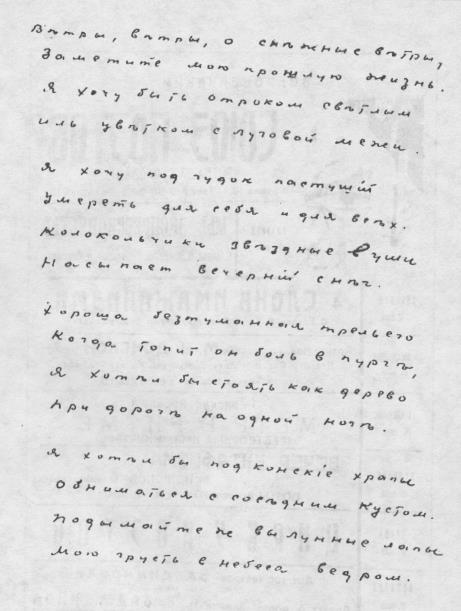 Вѣтры, вѣтры, о снѣжные вѣтры,
Заметите мою прошлую жизнь.
Я хочу быть отроком свѣтлым
иль цвѣтком с луговой межи.
Я хочу под гудок пастуший
Умереть для себя и для всѣх.
Колокольчики звѣздные в уши
Насыпает вечерній снѣг.
Хороша безтуманная трель его
Когда топит он боль в пургѣ,
Я хотѣл бы стоять как дерево
При дорогѣ на одной ногѣ.
Я хотѣл бы под конскіе храпы
Обниматься с сосѣдним кустом.
Подымайте ж вы лунные лапы
Мою грусть в небеса ведром.